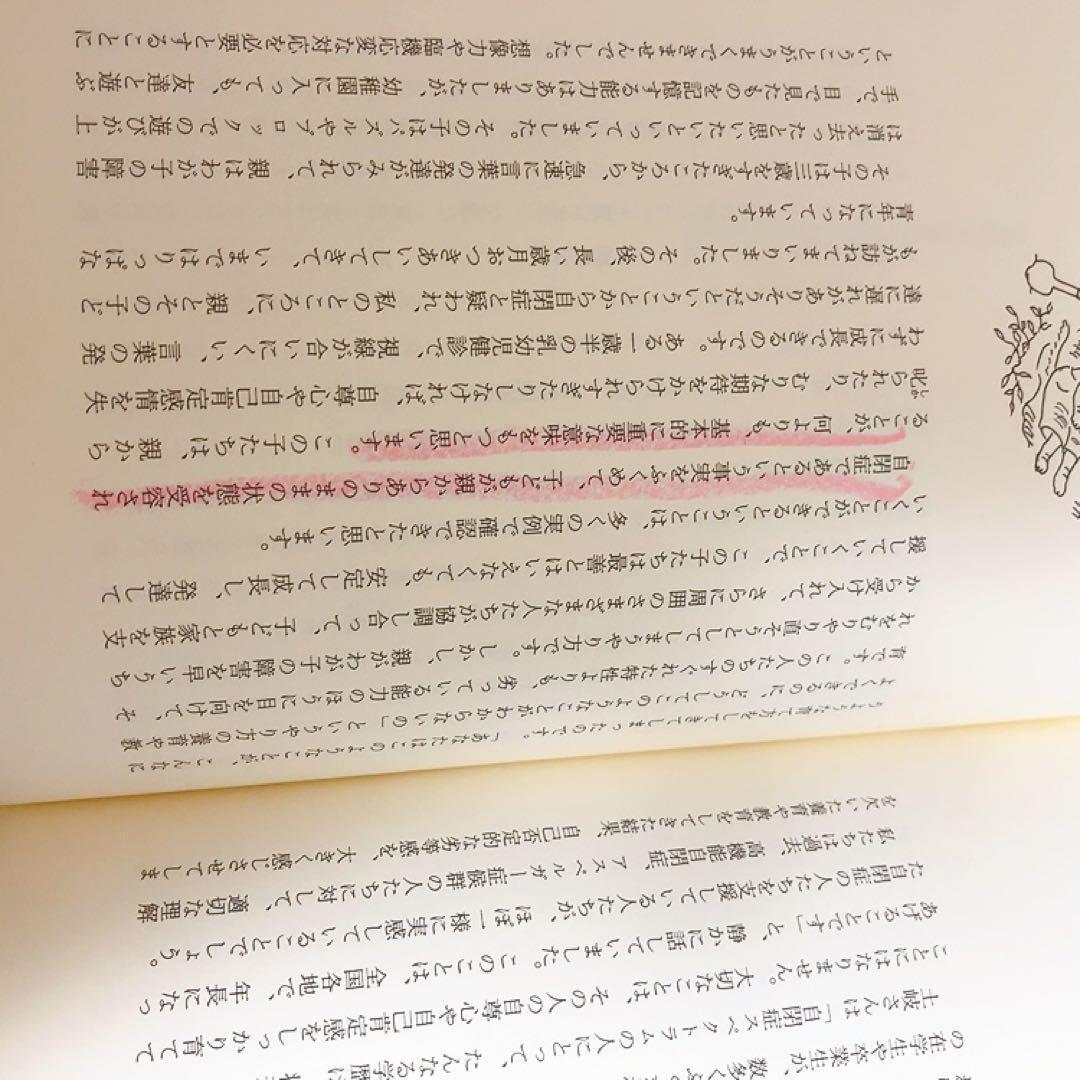 の在学生や卒業生が、数多く
土岐さんは「自閉症スペクトラムの人にとって、たんなる学歴は
ことにはなりません。大切なことは、その人の自尊心や自己肯定感をしっかり育てて
あげることです」と、静かに話していました。このことは、全国各地で、年長になっ
た自閉症の人たちを支援している人たちが、ほぼ一様に実感していることでしょう。
私たちは過去、高機能自閉症、アスペルガー症候群の人たちに対して、適切な理解
を欠いた養育や教育をしてきた結果、自己否定的な劣等感を、大きく感じさせてしま
うような育て方をしてきてしまったのです。「あなたはこのようなことが、こんなに
よくできるのに、どうしてこのようなことがわからないの」というやり方の養育や教
育です。この人たちのすぐれた特性よりも、劣っている能力のほうに目を向けて、そ
れをむりやり直そうとしてしまうやり方です。しかし、親がわが子の障害を早いうち
から受け入れて、さらに周囲のさまざまな人たちが協調し合って、子どもと家族を支
援していくことで、この子たちは最善とはいえなくても、安定して成長し、発達して
いくことができるということは、多くの実例で確認できたと思います。
自閉症であるという事実をふくめて、子どもが親からありのままの状態を受容され
ることが、何よりも、基本的に重要な意味をもつと思います。この子たちは、親から
叱られたり、むりな期待をかけられすぎたりしなければ、自尊心や自己肯定感情を失
わずに成長できるのです。ある一歳半の乳幼児健診で、視線が合いにくい、言葉の発
達に遅れがありそうだということから自閉症と疑われ、私のところに、親とその子ど
もが訪ねてまいりました。その後、長い歳月おつきあいしてきて、いまではりっぱな
青年になっています。
その子は三歳をすぎたころから、急速に言葉の発達がみられて、親はわが子の障害
は消え去ったと思いたいといっていました。その子はパズルやブロックでの遊びが上
手で、目で見たものを記憶する能力はありましたが、幼稚園に入っても、友達と遊ぶ
ということがうまくできませんでした。想像力や臨機応変な対応を必要とすることに